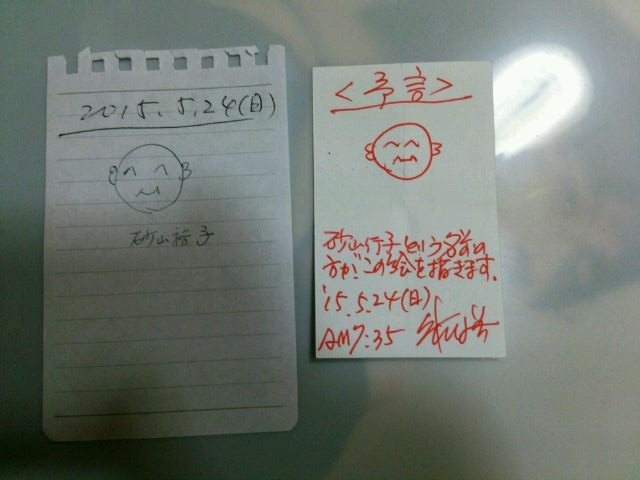 2015.5.24(日)
砂山裕子
<予言>
砂山行子という名前の
方がこの絵を描きます。
'15.5.24(日)
AM7:35